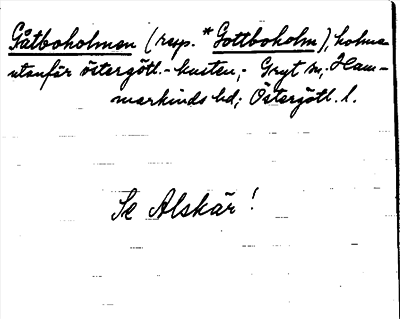 Gåtboholmen (resp. *Gottboholm), holme
utanför östergötl.-kusten;- Gryt sn; Ham-
markinds hd; Östergötl. l.
Se Alskär!